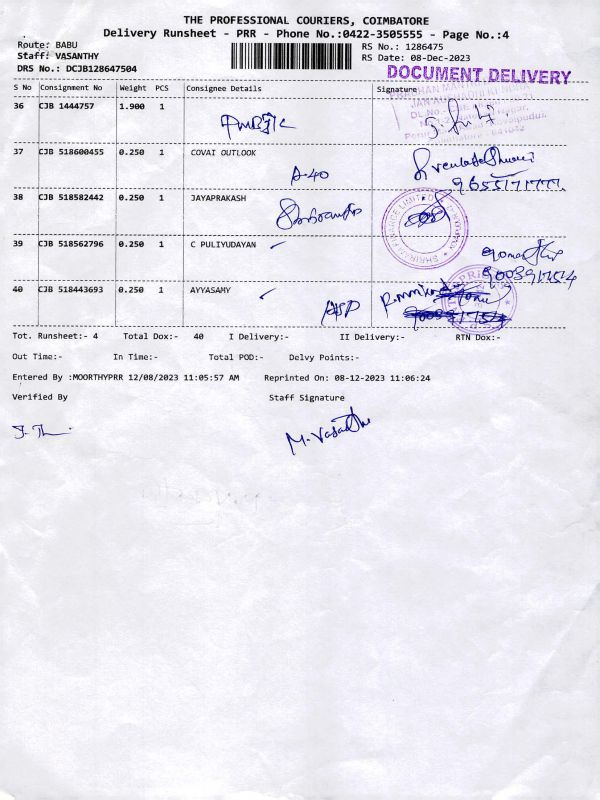 THE PROFESSIONAL COURIERS, COIMBATORE
Delivery Runsheet - PRR - Phone No.:0422-3505555 - Page No.:4
Route: BABU
RS No.: 1286475
Staff: VASANTHY
RS Date: 08-Dec-2023
DRS No.: DCJB128647504
DOCUMENT DELIVERY
S No Consignment No Weight PCS Consignee Details Signature
36 CJB 1444757 1.900 1
37 CJB 518600455 0.250 1 COVAI OUTLOOK
A-40
38 CJB 518582442 0.250 1 JAYAPRAKASH
39 CJB 518562796 0.250 1 C PULIYUDAYAN
9003917754
40 CJB 518443693 0.250 1 AYYASAMY
Tot. Runsheet:- 4 Total Dox:- 40 I Delivery:- II Delivery:- RTN Dox:-
Out Time:- In Time:- Total POD:- Delvy Points:-
Entered By :MOORTHYPRR 12/08/2023 11:05:57 AM Reprinted On: 08-12-2023 11:06:24
Verified By Staff Signature
M. Vasantha